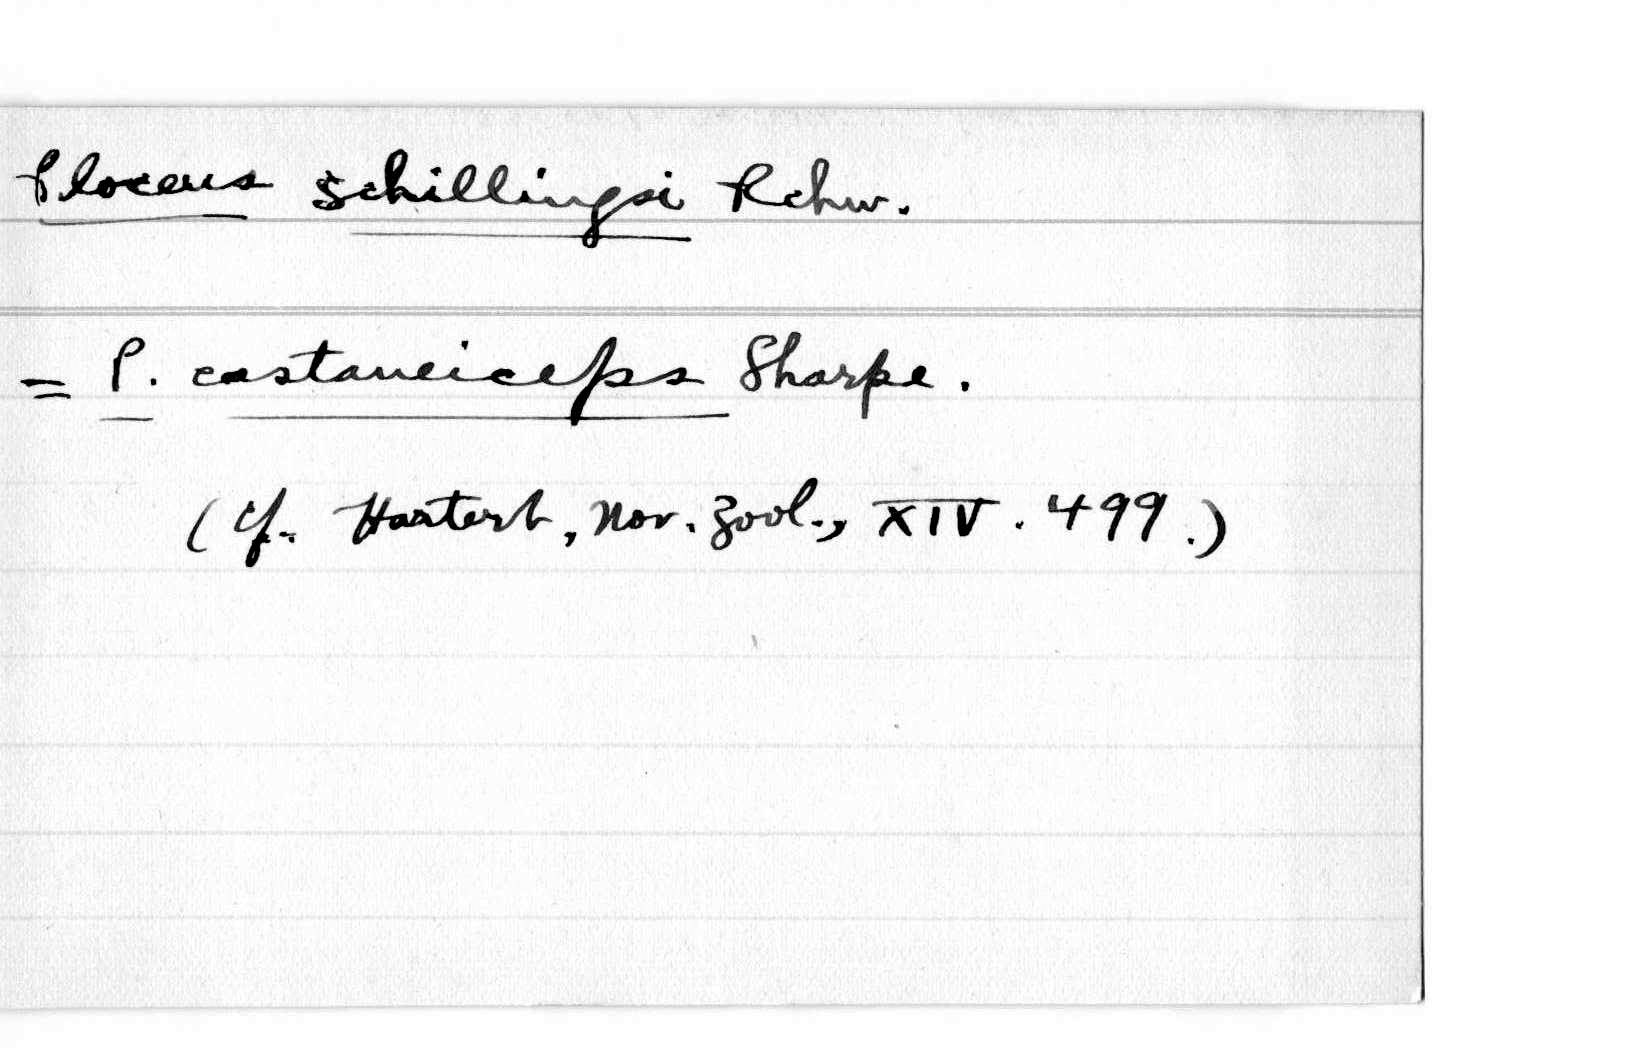 Ploceus schillingsi Rchw.
= P. castaneiceps Sharpe.
(Cf. Hartert, Nov. Zool., XIV. 499.)